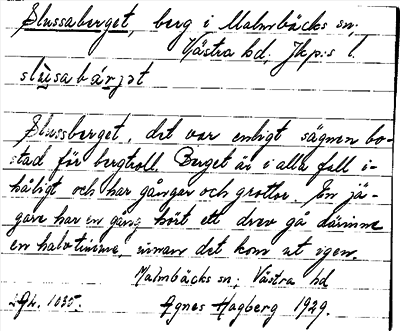 Slussaberget, berg i Malmbäcks sn.
Västra hd, Jkp:s l.
slùsabárjət
Slussberget, det var enligt sägnen bo-
stad för bergtroll. Berget är i alla fall i-
håligt och har gånger och grottor. En jä-
gare har en gång hört ett drev gå därinne
en halvtimme, innan det kom ut igen.
Malmbäcks sn, Västra hd
1035.
Agnes Hagberg 1929.